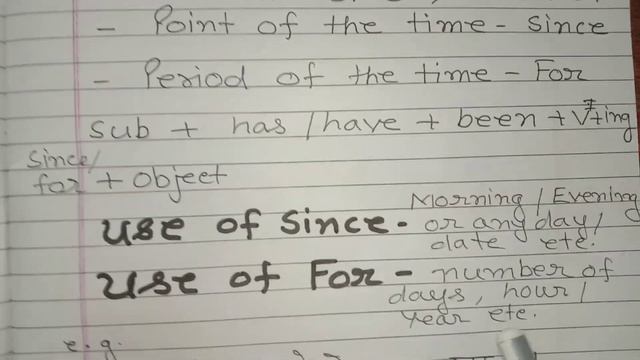 - Point of the time - Since
- Period of the time - For
sub + has / have + been + V+ing
since/
for + object
use of Since - Morning / Evening
or any day /
date etc.
use of For - number of
days, hour /
year etc.
e.g.